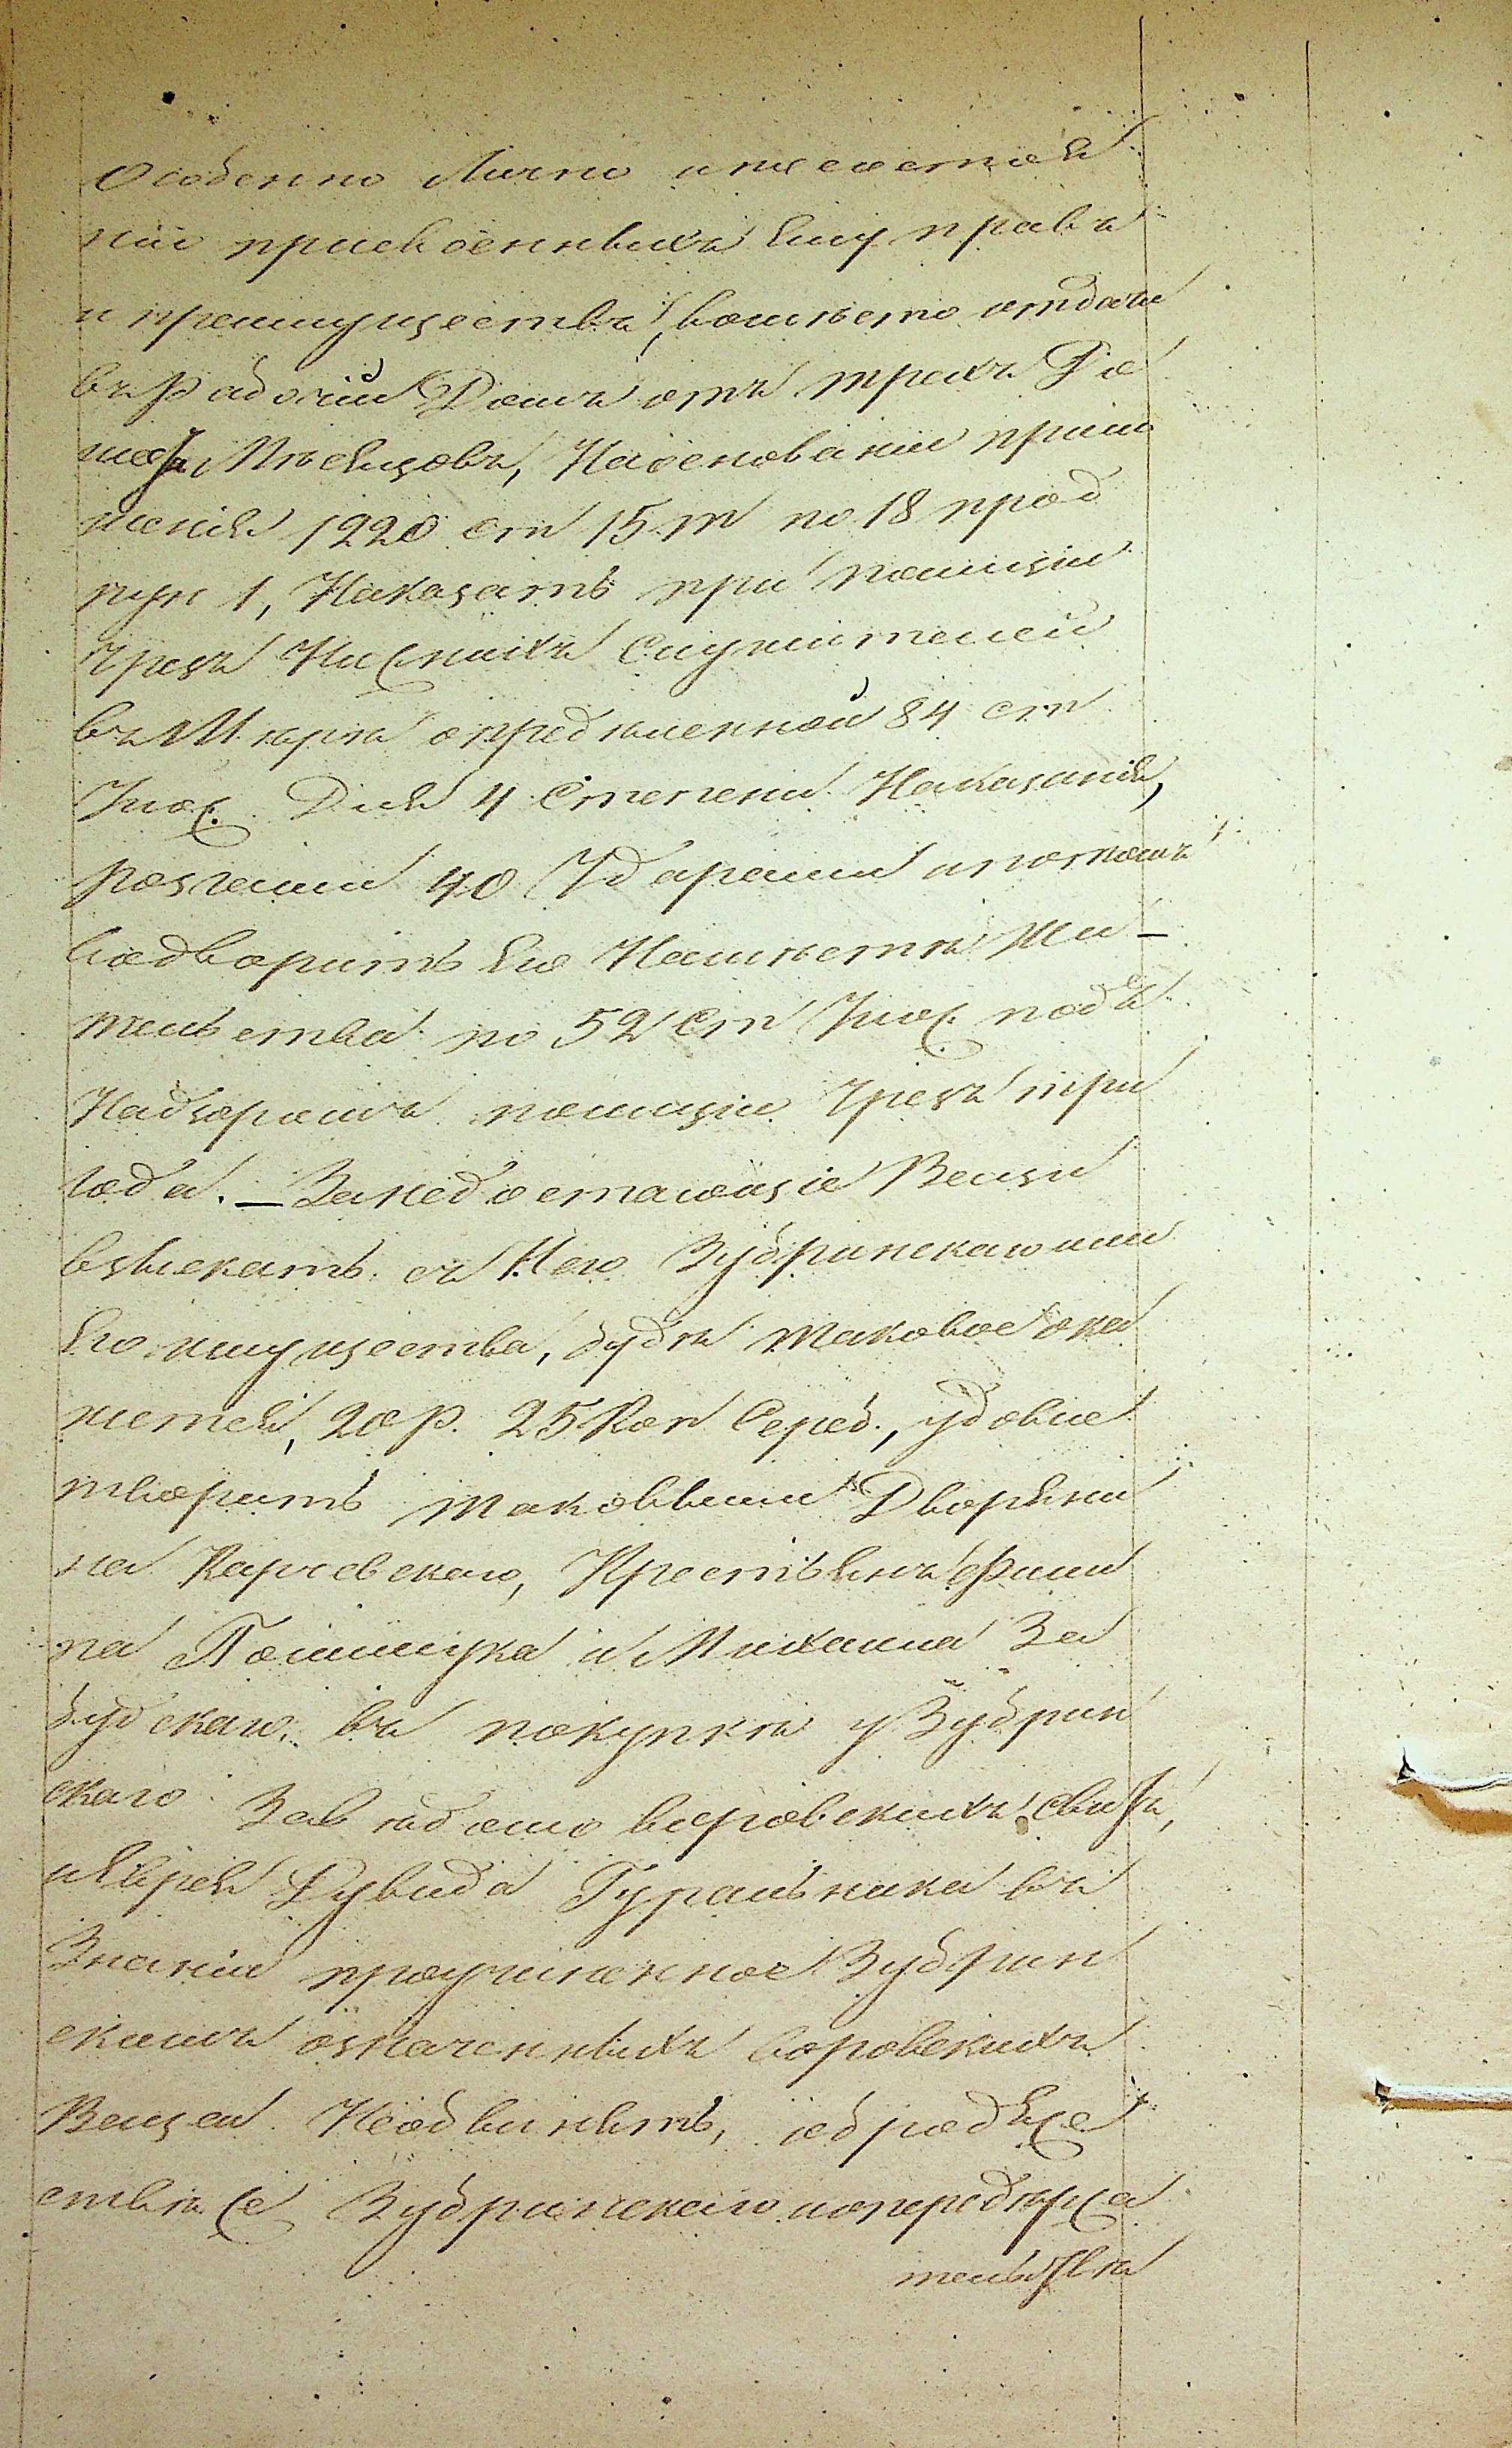 особенно лично и по состоя
нію присвоенныхъ ему правъ
и преимуществъ, вомѣсто отдачи
въ Рабочій Домъ отъ трехъ до
шести Мѣсяцовъ, На основаніи прило
женія 1220 ст 15 т по 18 прод
пун 1, Наказать при полиціи
чрезъ Низшихъ Служителей
въ Мѣрѣ определенной 84 ст
Улож. Для 4 степени Наказанія,
розгами 40 Ударами и потомъ
водворить Его На мѣстѣ Жи-
тельства по 52 ст Улож. подъ
Надзоромъ полиціи чрезъ три
года. — За недостающіе Вещи
взыскать съ Него Зубринскаго или
Его имущества, будѣ таковое ока
жется, 20 р. 25 Коп Сереб., удовле
творить таковыми Дворяни
на Карчевскаго, Крестьянъ Фили
па Полищука и Михаила За
будскаго. въ покупкѣ у Зубрин
скаго Завѣдомо воровскихъ свитъ,
и Еврея Дувида Гуральника въ
Знаніи проучиненное Зубрин
скимъ означенныхъ воровскихъ
Вещей Необвинять, обродяже
ствѣ же Зубринскаго и о передержа
тельствѣ